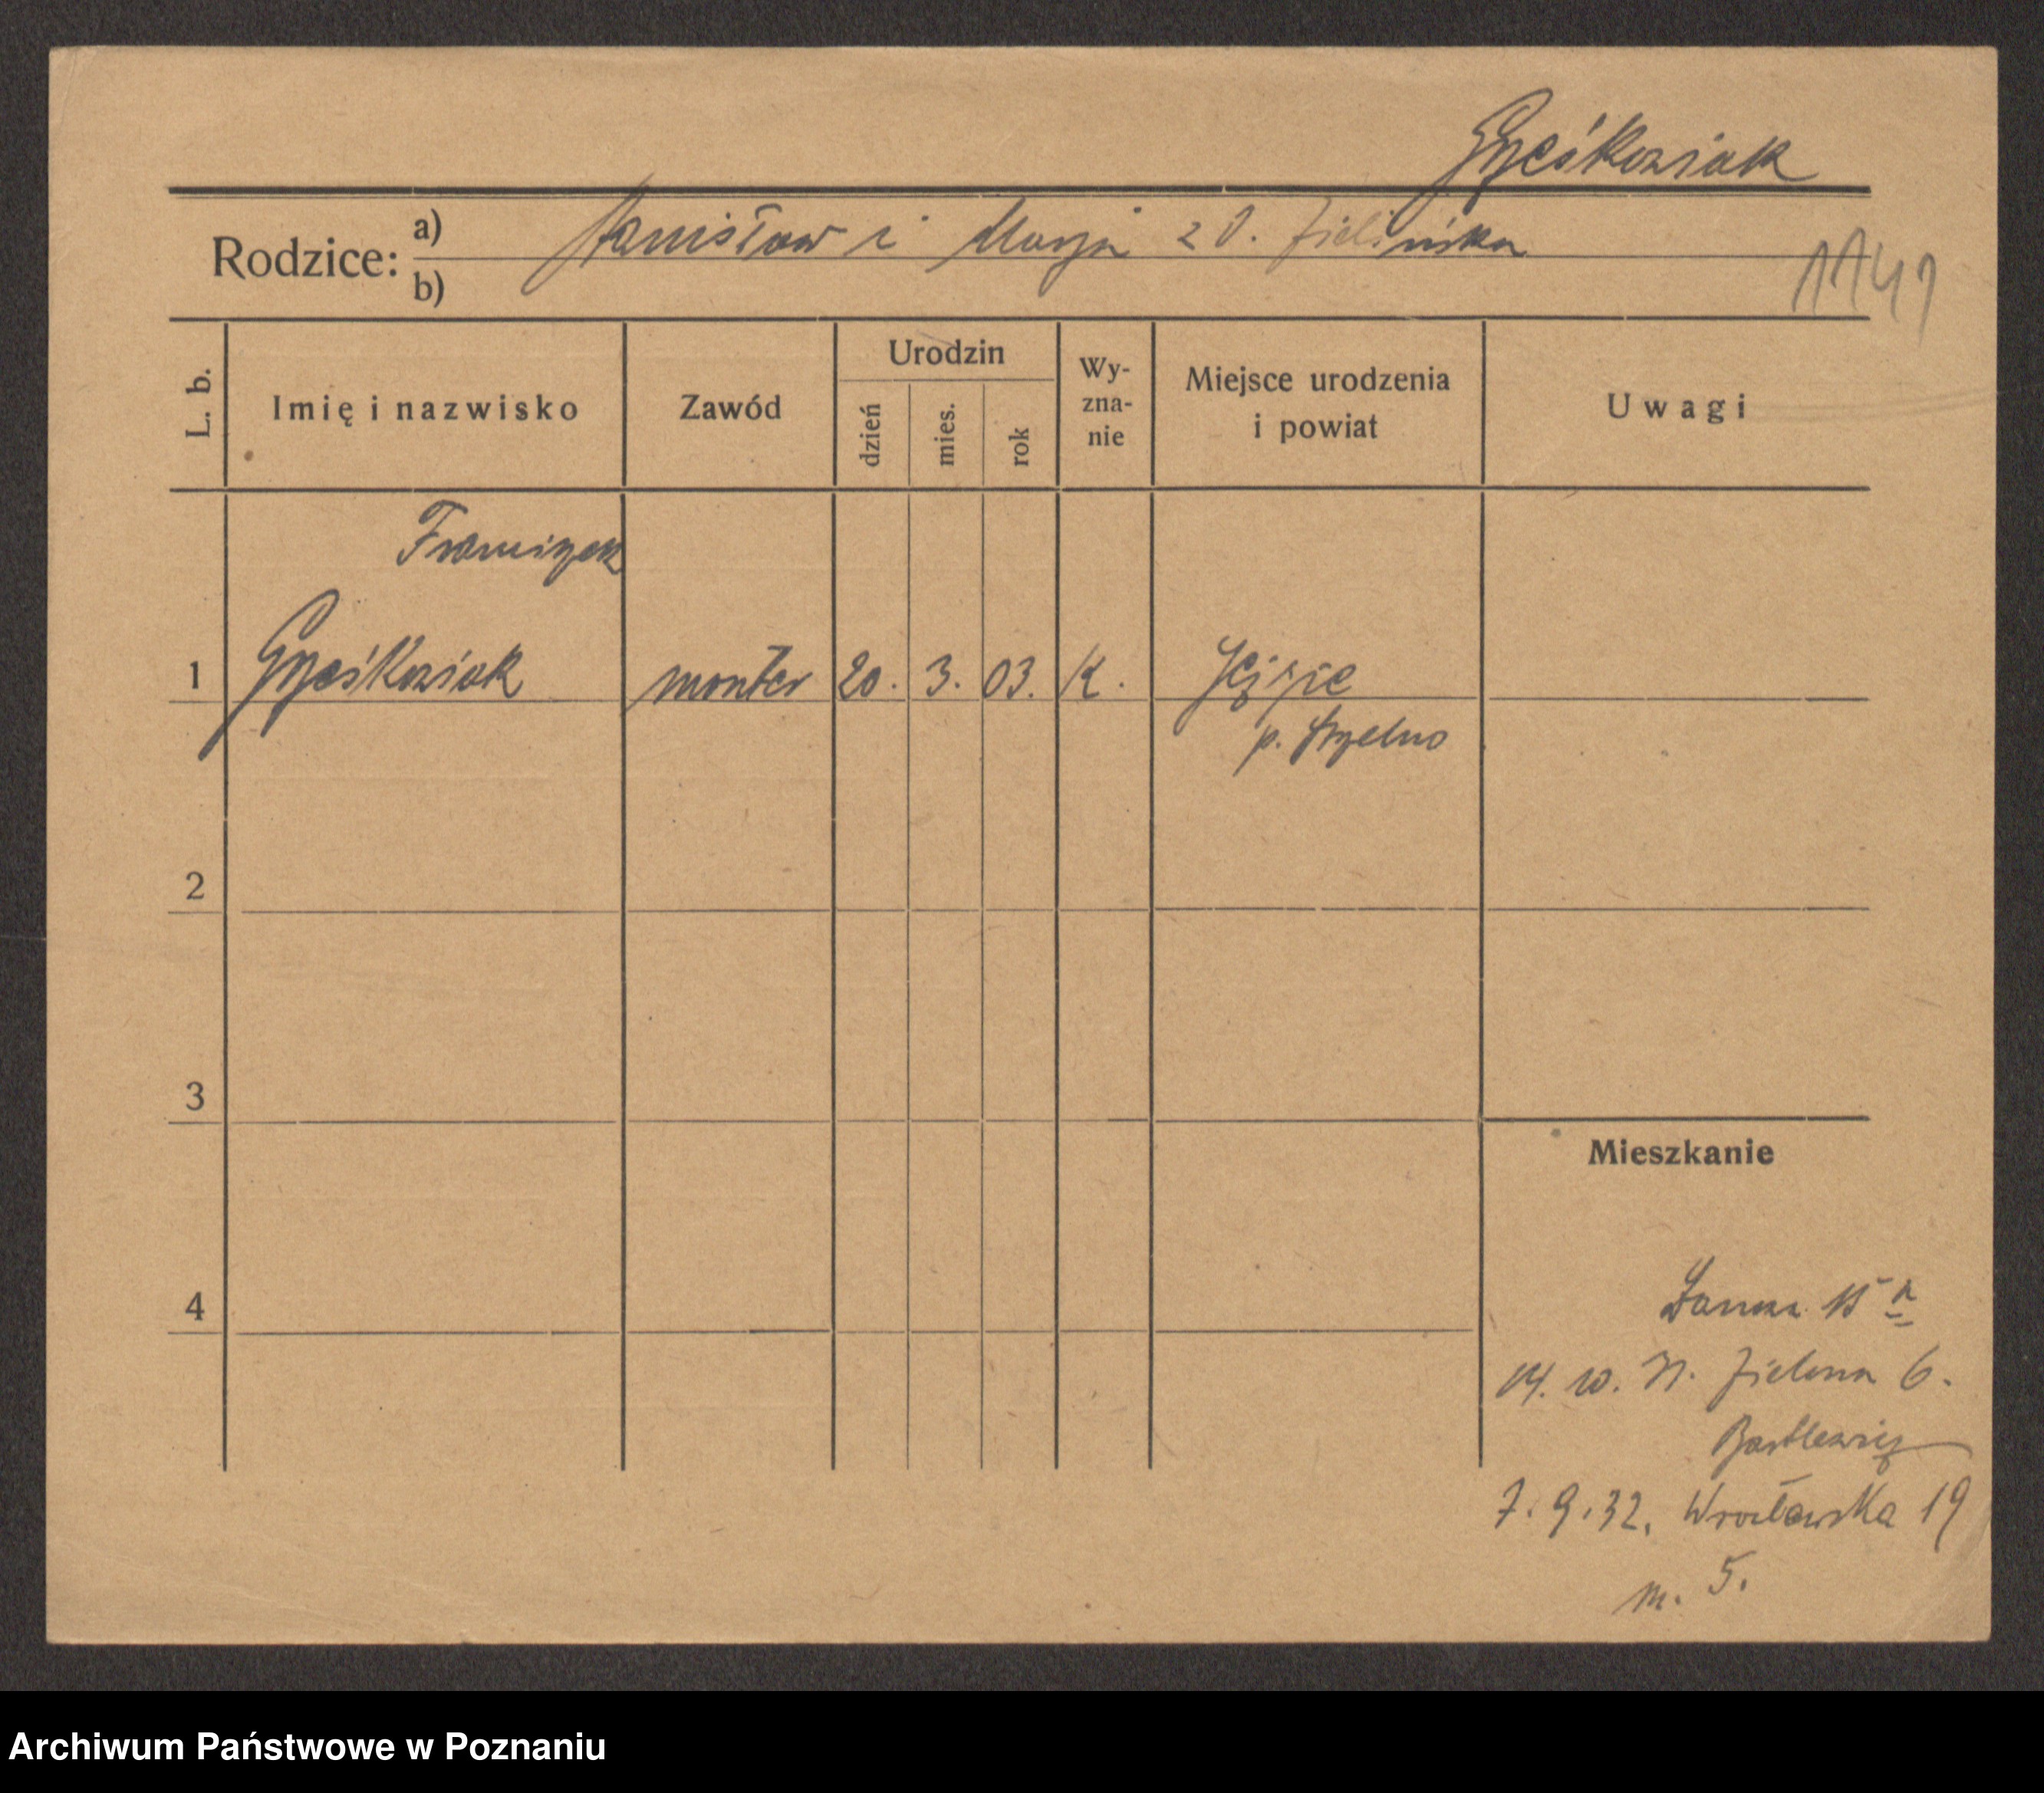 Grześkowiak
Rodzice: a) Stanisław i Marja z d. Zielińska
b)
1141
L. b.
Imię i nazwisko
Zawód
Urodzin
dzień
mies.
rok
Wy-
zna-
nie
Miejsce urodzenia
i powiat
Uwagi
Franciszek
1 Grześkowiak monter 20. 3. 03. K.
p. Strzelno
2
3
Mieszkanie
4
15 a
14. 10. 31. Zielona 6.
Bartlewicz
7. 9. 32. Wrocławska 19
m. 5.
Archiwum Państwowe w Poznaniu